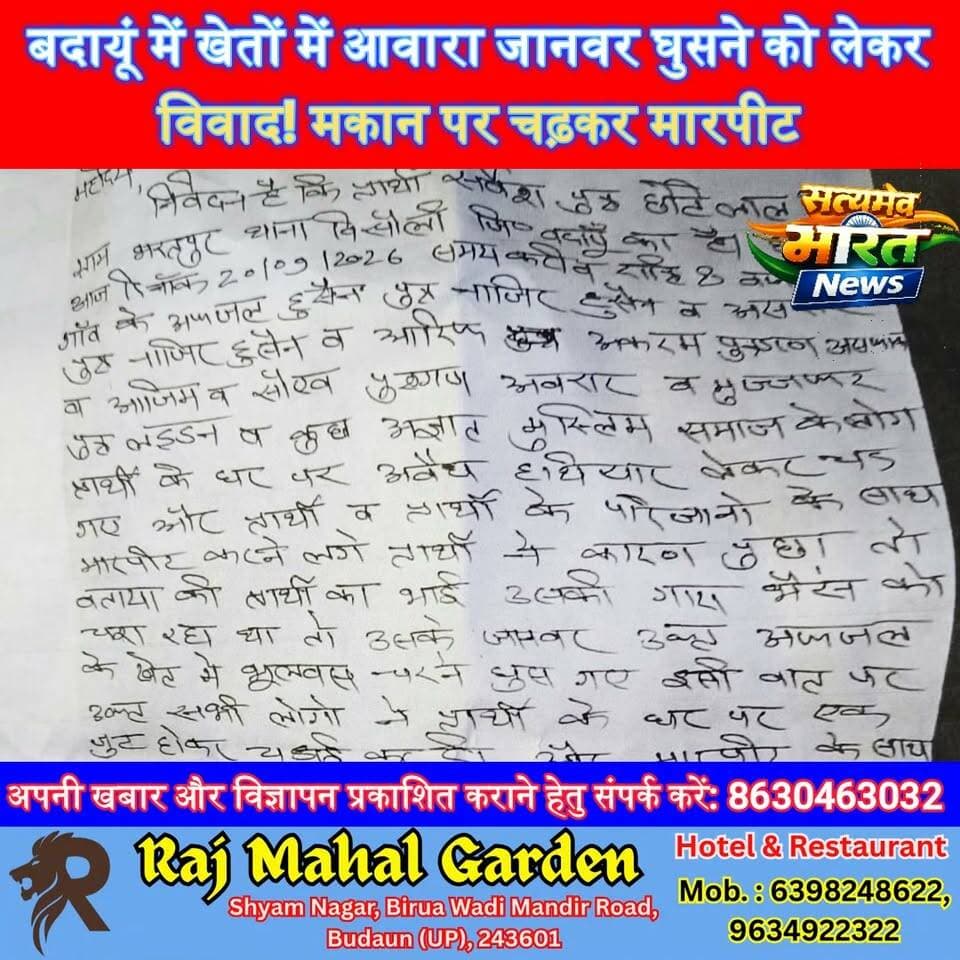 बदायूं में खेतों में आवारा जानवर घुसने को लेकर
विवाद! मकान पर चढ़कर मारपीट
सत्यमेव
भारत
News
महोदय,
निवेदन है कि प्रार्थी सर्वेश पुत्र छोटे लाल
ग्राम भरतपुर थाना बिसौली जि० बदायूँ का है।
आज दिनाँक 20/09/2026 समय करीब 8
गाँव के अफजल हुसैन पुत्र नाजिर हुसैन व
पुत्र नाजिर हुसैन व आरिफ अकरम पुत्रगण
व आजिम व सोएब पुत्रगण अबरार व मुज्जफर
पुत्र लड्डन व कुछ अज्ञात मुस्लिम समाज के लोग
प्रार्थी के घर पर अवैध हथियार लेकर चड
गए और प्रार्थी व प्रार्थी के परिजानो के साथ
मारपीट करने लगे प्रार्थी ने कारण पुछा तो
बताया की प्रार्थी का भाई उसकी गाय भैंस को
चरा रहा था तो उसके जानवर उक्त अफजल
के खेत मे भूलवस चरने घुस गए इसी बात पर
उक्त सभी लोगो ने प्रार्थी के घर पर एक
जुट होकर के साथ
अपनी खबार और विज्ञापन प्रकाशित कराने हेतु संपर्क करें: 8630463032
R Raj Mahal Garden
Shyam Nagar, Birua Wadi Mandir Road,
Budaun (UP), 243601
Hotel & Restaurant
Mob. : 6398248622,
9634922322